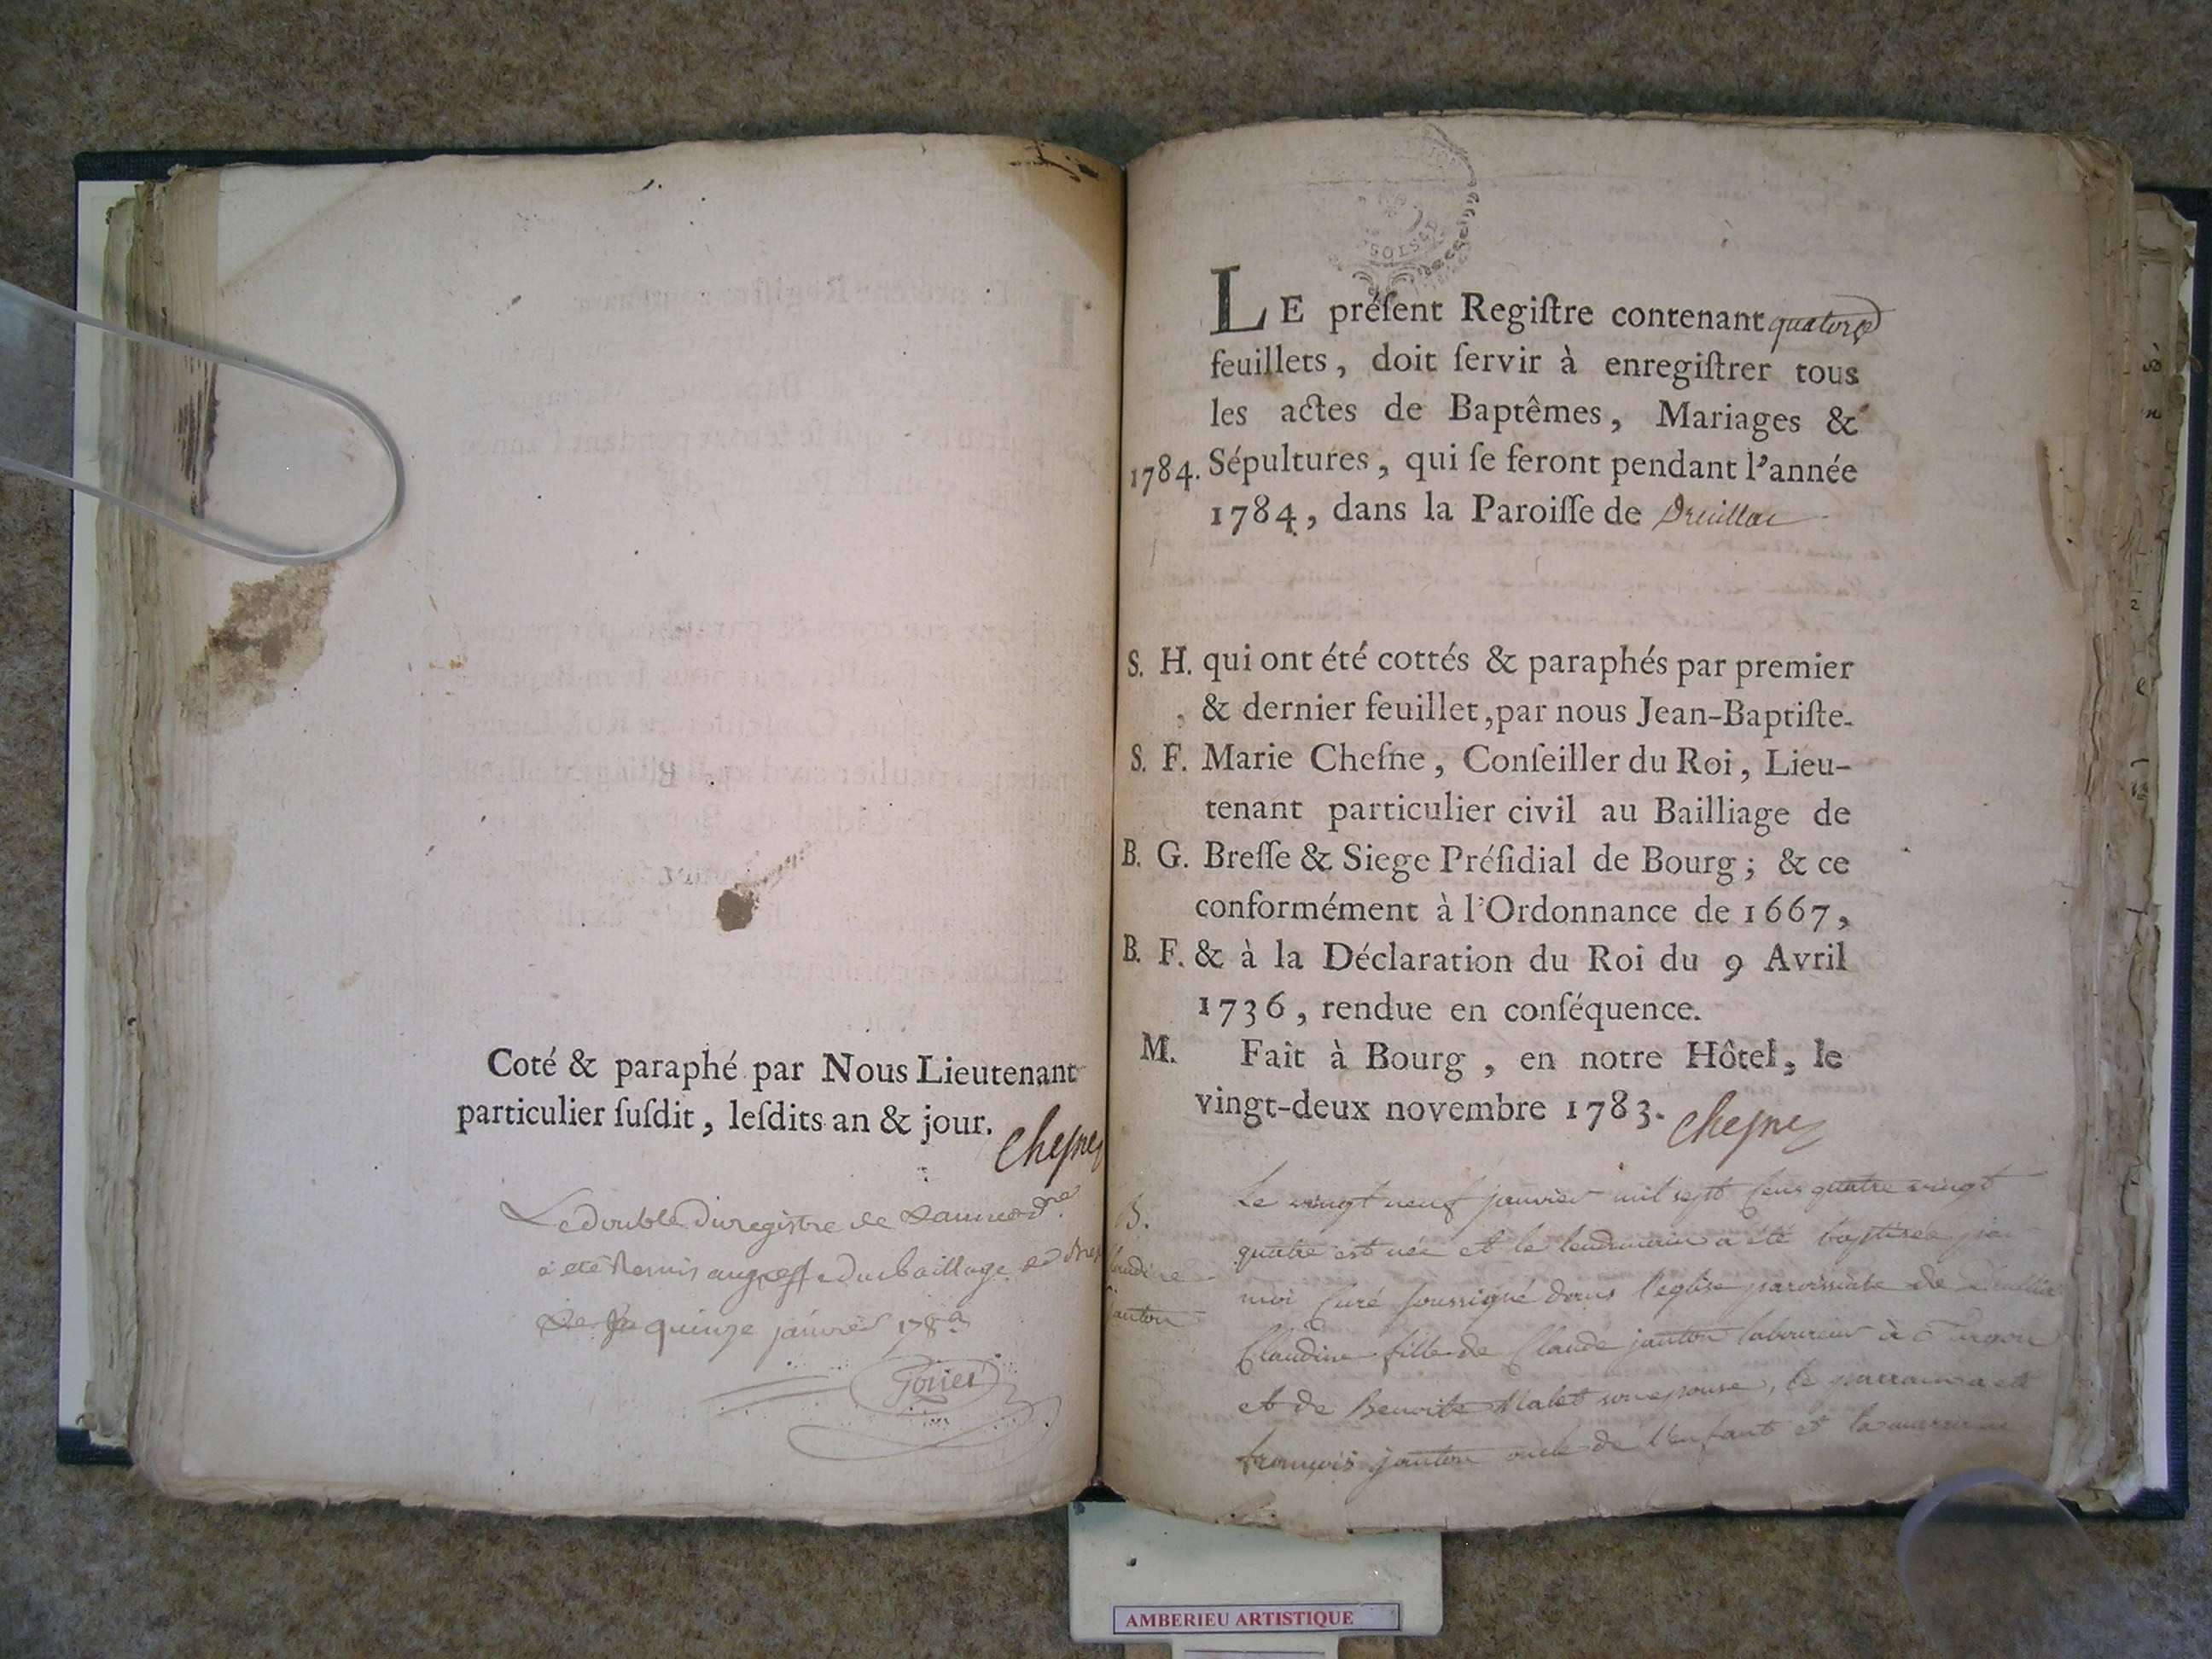 Coté & paraphé par Nous Lieutenant
particulier ſuſdit, leſdits an & jour.
Chesne
Le double du registre de
a été Remis au greffe du bailliage de
quinze janvier
LE préſent Regiſtre contenant quatorze
feuillets, doit ſervir à enregiſtrer tous
les actes de Baptêmes, Mariages &
1784. Sépultures, qui ſe feront pendant l'année
1784, dans la Paroiſſe de Druillat
S. H. qui ont été cottés & paraphés par premier
& dernier feuillet, par nous Jean-Baptiſte-
S. F. Marie Cheſne, Conſeiller du Roi, Lieu-
tenant particulier civil au Bailliage de
B. G. Breſſe & Siege Préſidial de Bourg; & ce
conformément à l'Ordonnance de 1667,
B. F. & à la Déclaration du Roi du 9 Avril
1736, rendue en conſéquence.
M. Fait à Bourg, en notre Hôtel, le
vingt-deux novembre 1783. Chesne
B. Le vingt neuf janvier mil sept cens quatre vingt
quatre est née et le lendemain a été baptisée par
Claudine moi Curé soussigné dans l'eglise paroissiale de Druillat
janton Claudine fille de Claude janton laboureur à
et de Benoite Malet son epouse, le parrain a été
françois janton oncle de l'enfant et la marraine
AMBERIEU ARTISTIQUE